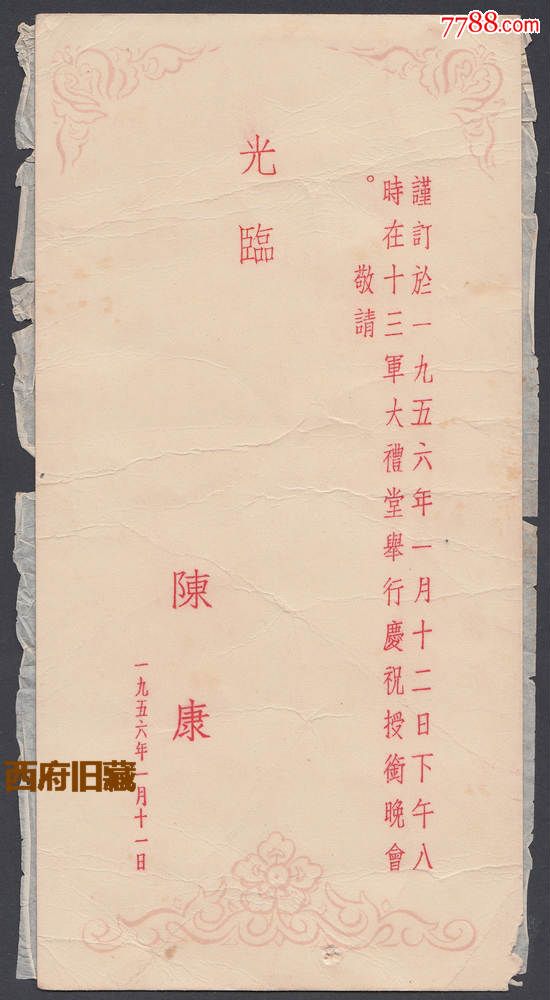 7788.com
謹訂於一九五六年一月十二日下午八
時在十三軍大禮堂舉行慶祝授銜晚會
。
敬請
光臨
陳康
一九五六年一月十一日
西府旧藏